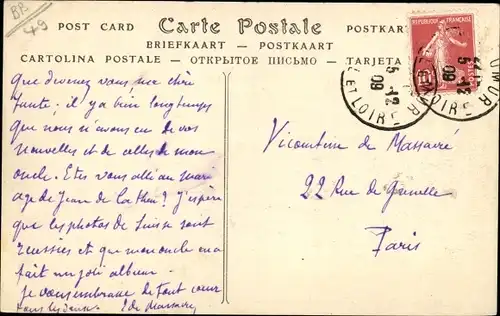 BB
49
POST CARD Carte Postale POSTKARTE
BRIEFKAART — POSTKAART
CARTOLINA POSTALE — ОТКРЫТОЕ ПИСЬМО — TARJETA
REPUBLIQUE FRANÇAISE
5 -12
09
ET LOIRE
5 -12
09
LOIRE
Que devenez vous ma chère
tante: il y a bien longtemps
que nous n'avons eu de vos
nouvelles et de celles de mon
oncle. Etes vous allé au mari
age de Jean de ? J'espère
que les photos de Suisse sont
réussies et que mon oncle en a
fait un joli album.
Je vous embrasse de tout cœur
tous les deux
Vicomtesse de
22 Rue de Grenelle
Paris